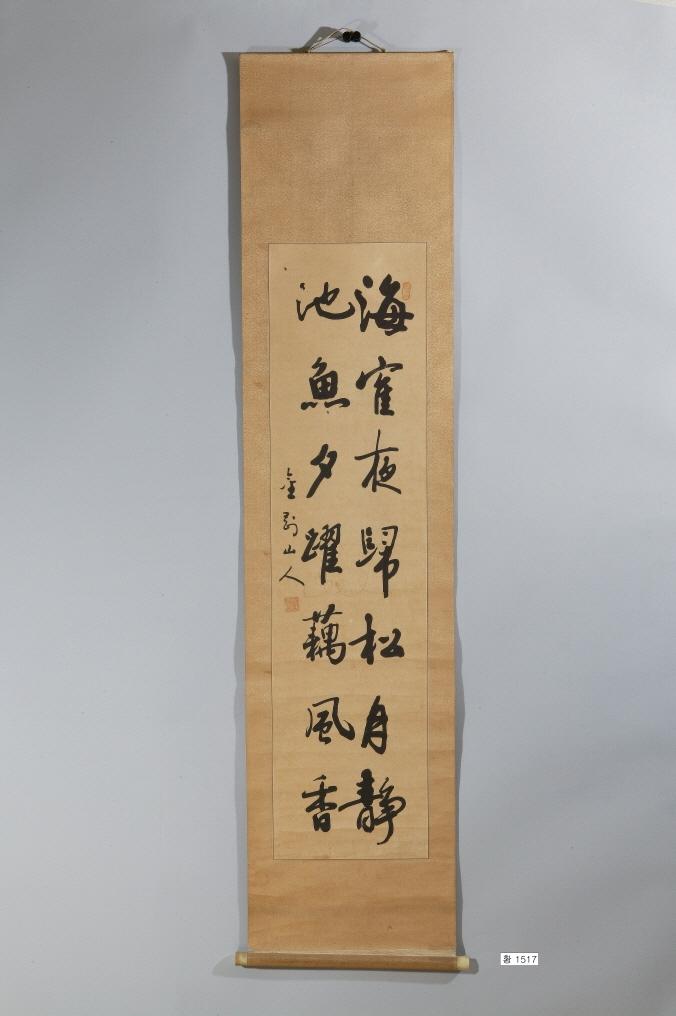 海寉夜歸松月靜
池魚夕躍藕風香
金剛山人
황 1517